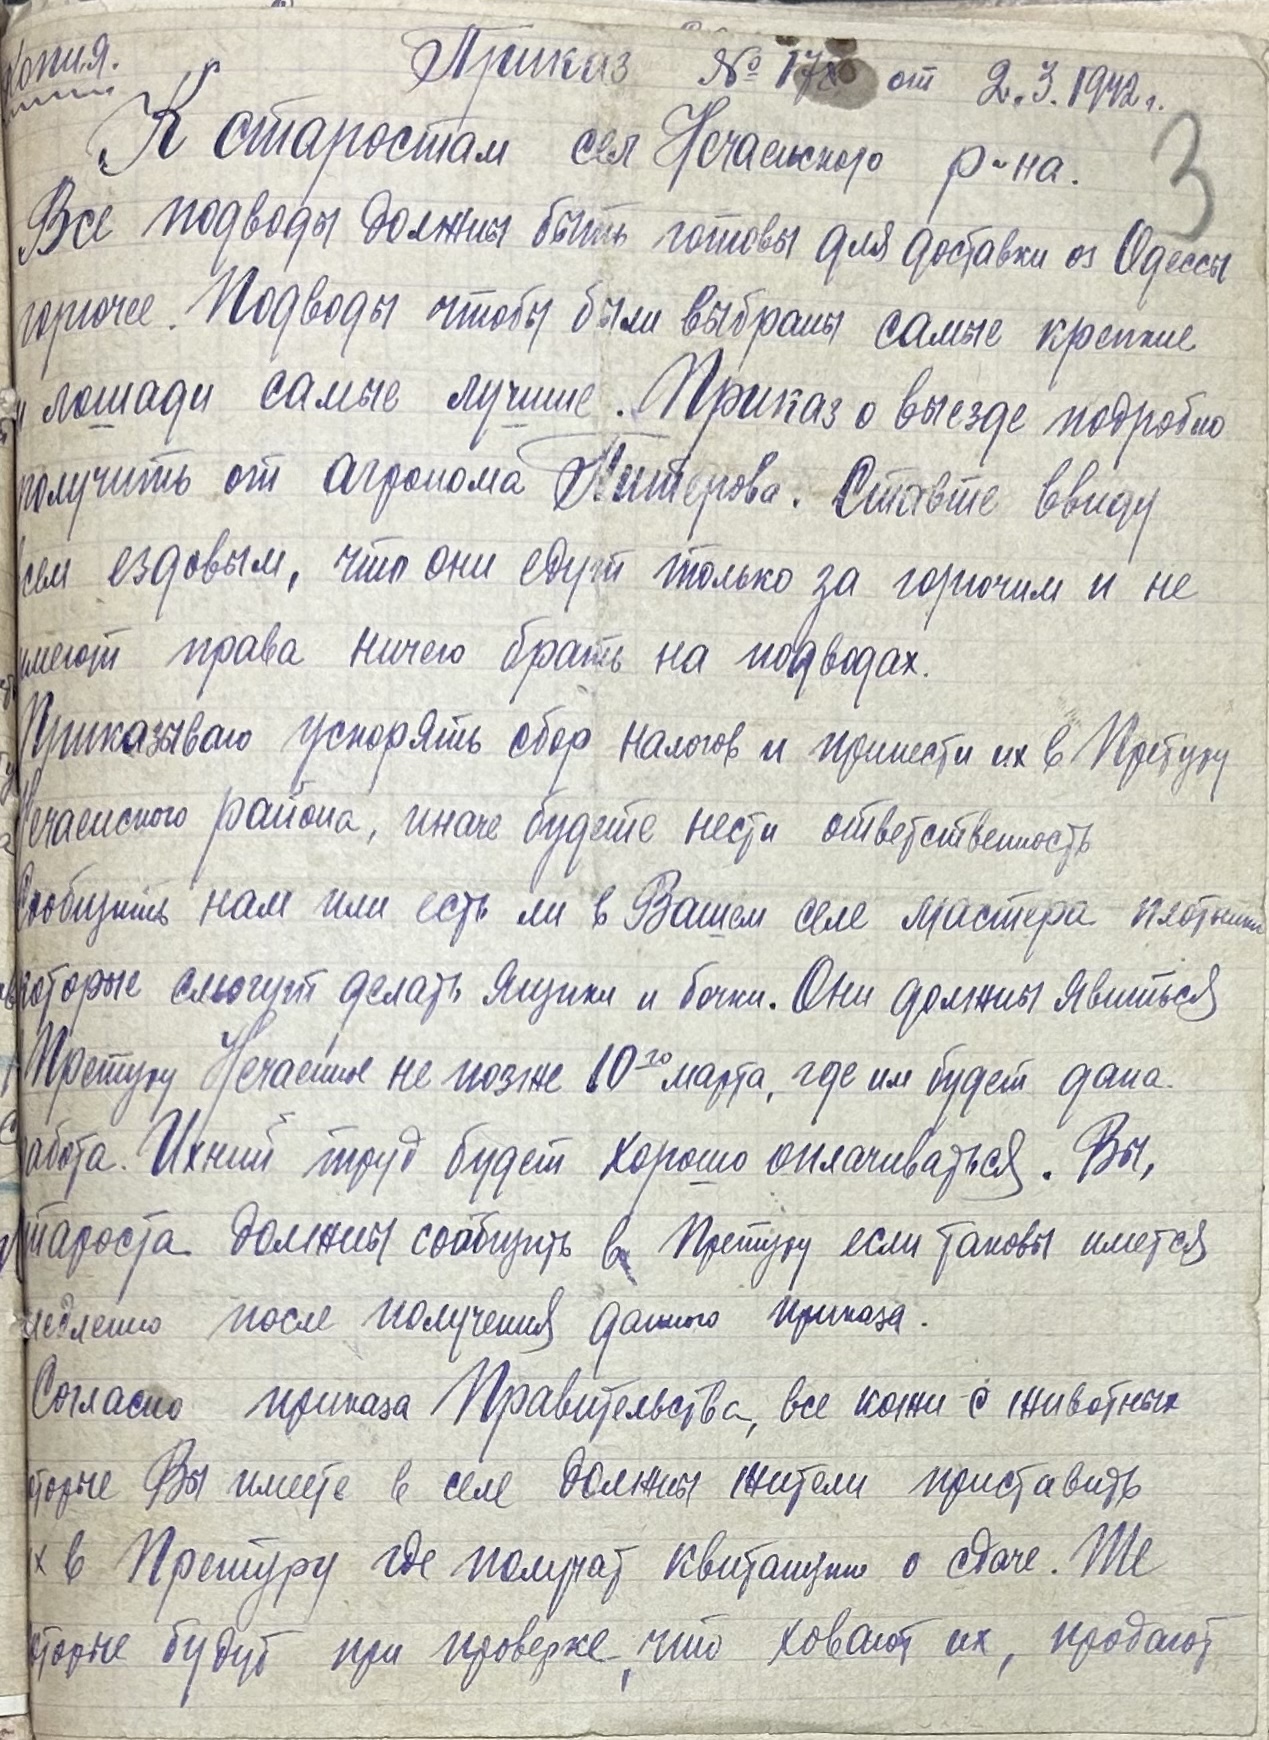 Копия.
Приказ № 178 от 2.3.1942 г.
3
К старостам сел Нечаенского р-на.
Все подводы должны быть готовы для доставки из Одессы
горючее. Подводы чтобы были выбраны самые крепкие
и лошади самые лучшие. Приказ о выезде подробно
получить от агронома Питерова. Ставте ввиду
всем ездовым, что они едут только за горючим и не
имеют права ничего брать на подводах.
Приказываю ускорять сбор налогов и принести их в Претуру
Нечаенского района, иначе будете нести ответственность
Сообщить нам или есть ли в Вашем селе мастера плотники
которые смогут делать ящики и бочки. Они должны явиться
Претуру Нечаенное не позже 10го марта, где им будет дана
абота. Ихний труд будет хорошо оплачиваться. Вы,
тароста должны сообщить в Претуру если таковы имется
медленно после получения данного приказа.
Согласно приказа Правительства, все кожи с животных
оторые Вы имеете в селе должны жители приставить
х в Претуру где получат квитанции о сдаче. Те
оторые будут при проверке, что ховают их, продают